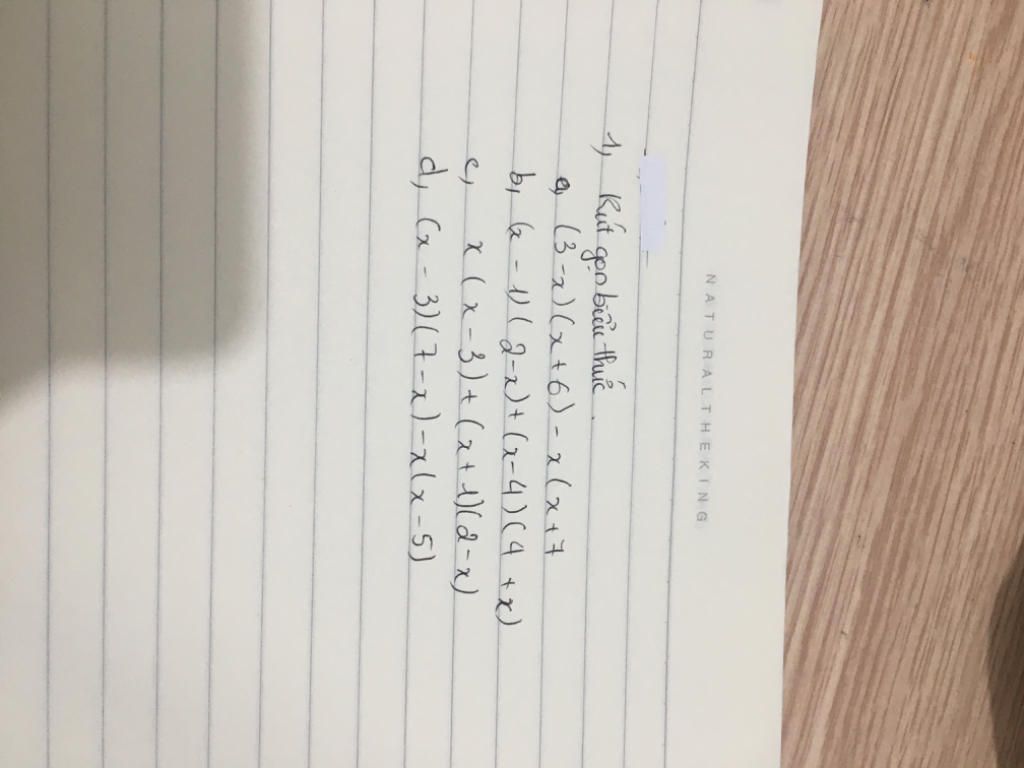 NATURALTHEKING
1, Rút gọn biểu thức.
a, (3-x)(x+6)-x(x+7
b, (x-1)(2-x)+(x-4)(4+x)
c, x(x-3)+(x+1)(2-x)
d, (x-3)(7-x)-x(x-5)